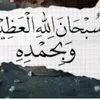 سُبْحَانَ اللهِ الْعَظِيمِ
وَبِحَمْدِهِ